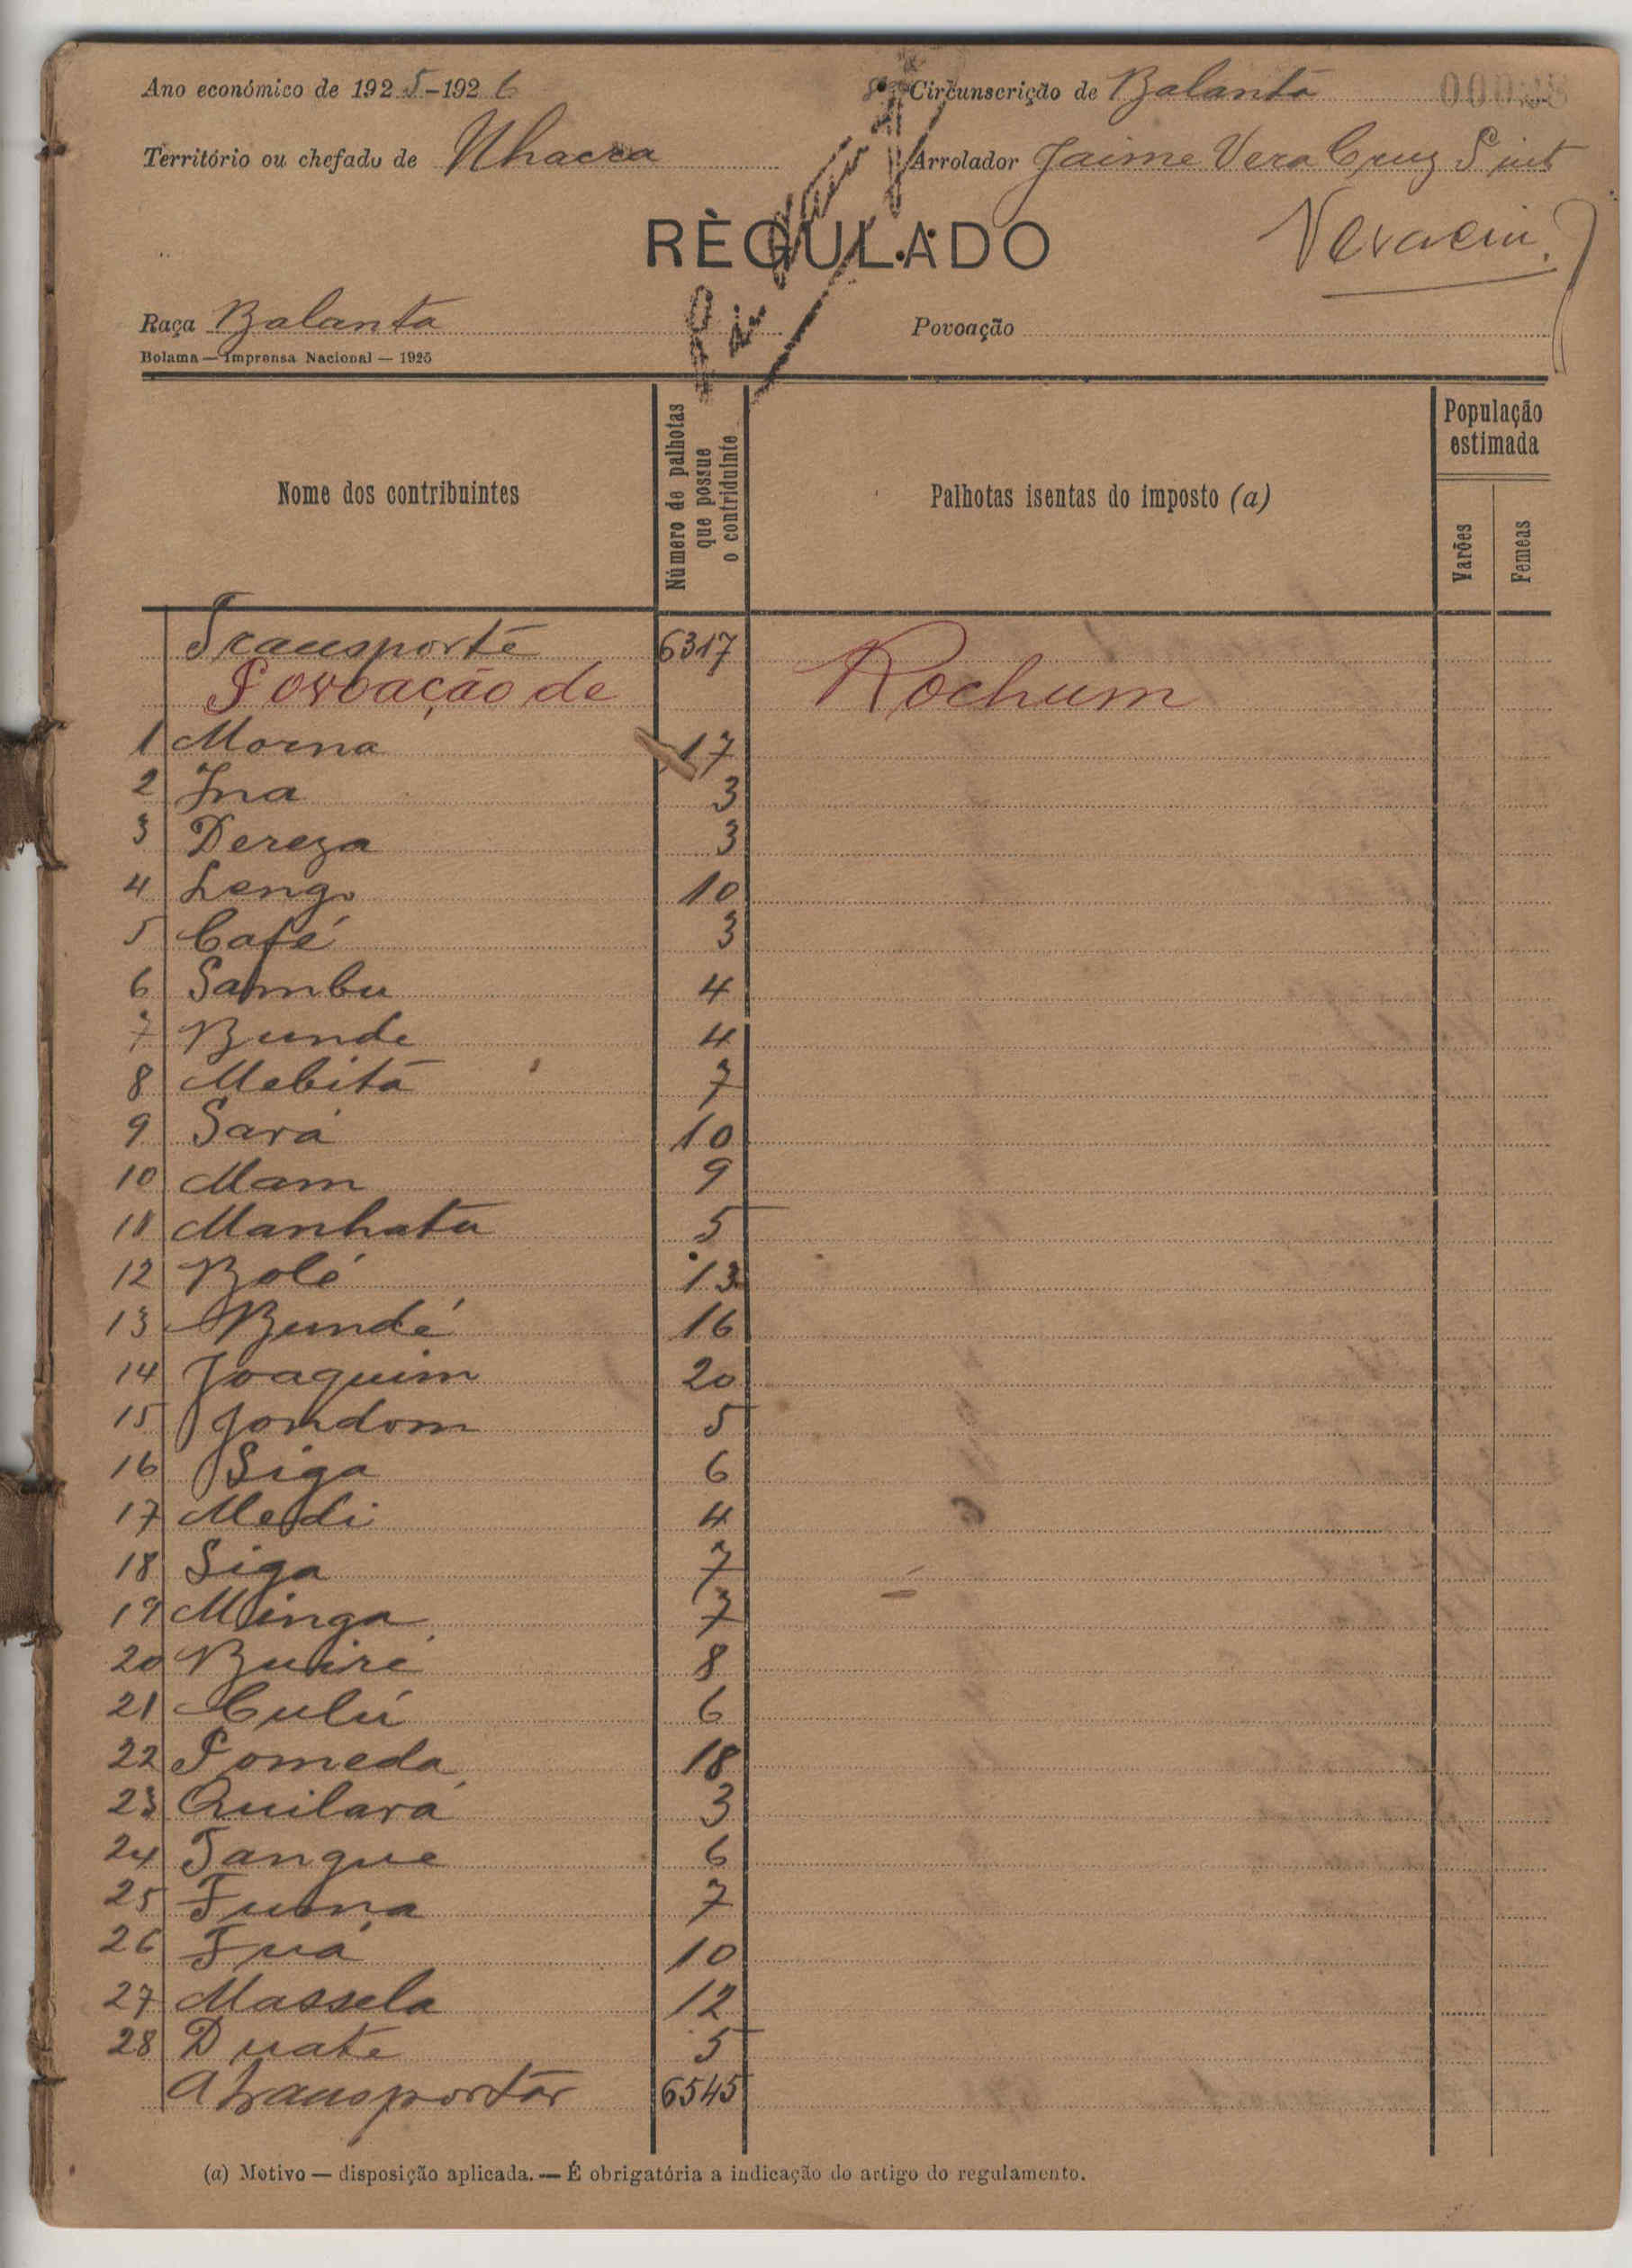 Ano económico de 1925-1926
Circunscrição de Balanta
Território ou chefado de Nhacra
Arrolador Jaime Vera Cruz Pinto
RÈGULADO
Raça Balanta
Povoação
Bolama — Imprensa Nacional — 1925
Nome dos contribuintes
Número de palhotas
que possue
o contriduinte
Palhotas isentas do imposto (a)
População
estimada
Varões
Femeas
Transporte 6317
Povoação de Rochum
1 Morna 17
2 Ina 3
3 Dereza 3
4 Lengo 10
5 Café 3
6 Sambu 4
7 Bunde 4
8 Mebitá 7
9 Sará 10
10 Mam 9
11 Manhata 5
12 Bolé 13
13 Bundé 16
14 Joaquim 20
15 Jondom 5
16 Siga 6
17 Medi 4
18 Siga 7
19 Minga 7
20 Buiré 8
21 Culú 6
22 Pomeda 18
23 Quilará 3
24 Tangue 6
25 Fuona 7
26 Fuá 10
27 Massela 12
28 Duate 5
A transportar 6545
(a) Motivo — disposição aplicada. — É obrigatória a indicação do artigo do regulamento.